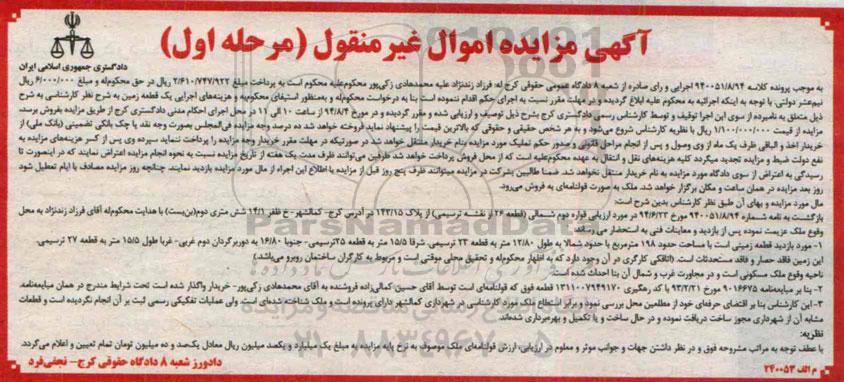 آگهی مزایده اموال غیر منقول (مرحله اول)
دادگستری جمهوری اسلامی ایران
به موجب پرونده کلاسه ۹۴۰۰۵۱/۸/۹۴ اجرایی و رای صادره از شعبه ۸ دادگاه عمومی حقوقی کرج له: فرزاد زندنژاد علیه محمدهادی زکی‌پور محکوم‌علیه محکوم است به پرداخت مبلغ ۲/۶۱۰/۷۴۷/۹۲۲ ریال در حق محکوم‌له و مبلغ ۶/۰۰۰/۰۰۰ ریال
نیم‌عشر دولتی. با توجه به اینکه اجرائیه به محکوم علیه ابلاغ گردیده و در مهلت مقرر نسبت به اجرای حکم اقدام ننموده است بنا به درخواست محکوم‌له و به‌منظور استیفای محکوم‌به و هزینه‌های اجرایی یک قطعه زمین به شرح نظر کارشناسی به شرح
ذیل متعلق به نامبرده از سوی این اجرا توقیف و توسط کارشناس رسمی دادگستری کرج بشرح ذیل توصیف و ارزیابی شده و مقرر گردیده و در مورخ ۹۴/۸/۴ از ساعت ۱۰ الی ۱۱ در محل اجرای احکام مدنی دادگستری کرج از طریق مزایده بفروش برسد.
مزایده از قیمت ۱/۱۰۰/۰۰۰/۰۰۰ ریال با نظریه کارشناس شروع می‌شود و به هر شخص حقیقی و حقوقی که بالاترین قیمت را پیشنهاد نماید فروخته خواهد شد ده درصد وجه مزایده فی‌المجلس بصورت وجه نقد یا چک بانکی تضمینی (بانک ملی) از
خریدار اخذ و الباقی ظرف یک ماه از وی وصول و پس از انجام مراحل قانونی و صدور حکم تملیک مورد مزایده بنام خریدار منتقل خواهد شد در صورتیکه در مهلت مقرر خریدار وجه مزایده را پرداخت ننماید سپرده وی پس از کسر هزینه‌های مزایده به
نفع دولت ضبط و مزایده تجدید میگردد کلیه هزینه‌های نقل و انتقال به عهده محکوم‌علیه است که از محل فروش پرداخت خواهد شد. طرفین می‌توانند ظرف مدت یک هفته از تاریخ مزایده نسبت به نحوه انجام مزایده اعتراض نمایند که در اینصورت تا
رسیدگی به اعتراض از سوی دادگاه مورد مزایده به نام خریدار منتقل نخواهد شد. ضمنا طالبین بشرکت در مزایده میتوانند ظرف پنج روز قبل از مزایده با اطلاع این اجراء از مال مورد مزایده بازدید نمایند. چنانچه روز مزایده مصادف با ایام تعطیل شود
روز بعد مزایده در همان ساعت و مکان برگزار خواهد شد. ملک به صورت قولنامه‌ای به فروش می‌رود.
مال مورد مزایده و بهای آن طبق نظر کارشناس بدین شرح است:
بازگشت به نامه شماره ۹۴۰۰۵۱/۸/۹۴ مورخ ۹۴/۶/۲۳ در مورد ارزیابی قواره دوم شمالی (قطعه ۲۶ از نقشه ترسیمی) از پلاک ۱۴۳/۱۵ در آدرس کرج- کمالشهر- خ ظفر ۱۴/۱ شش متری دوم(بن‌بست) با هدایت محکوم‌له آقای فرزاد زندنژاد به محل
وقوع ملک عزیمت نموده پس از بازدید و معاینات فنی به استحضار می رساند:
۱- مورد بازدید قطعه زمینی است با مساحت حدود ۱۹۸ مترمربع با حدود شمالا به طول ۱۲/۸۰ متر به قطعه ۲۳ ترسیمی، شرقا ۱۵/۵ متر به قطعه ۲۵ترسیمی- جنوبا ۱۶/۸۰ به دوربرگردان دوم غربی- غربا طول ۱۵/۵ متر به قطعه ۲۷ ترسیمی.
این زمین فاقد حصار و فاقد مستحدثات است. (اتاقکی کارگری در آن وجود دارد که به اظهار محکوم‌له و تحقیق محلی موقتی است و مربوط به کارگران ساختمان روبرو می‌باشد.)
ناحیه وقوع ملک مسکونی است و در مجاورت غرب و شمال آن بنا احداث شده است.
۲- بنا بر مبایعه‌نامه ۹۰۱۶۶۷۵ مورخ ۹۳/۲/۲۱ با کد رهگیری ۱۳۱۱۰۰۷۹۴۹۱۷۰ قطعه فوق که قولنامه‌ای است توسط آقای حسین کمالی‌زاده فروشنده به آقای محمدهادی زکی‌پور- خریدار واگذار شده است تحت شرایط مندرج در همان مبایعه‌نامه.
۳- این کارشناس بنا بر اقتضای حرفه‌ای خود از مطلعین محل بررسی نموده و برابر استطلاع ملک مورد کارشناسی در شهرداری کمالشهر دارای پرونده است و ملک شناخته شده‌ای است. ولی عملیات تفکیکی رسمی ثبت بر آن انجام نگردیده است و قطعات
مشابه آن از شهرداری مجوز ساخت دریافت نموده و در حال ساخت و یا تکمیل و بهره‌برداری شده‌اند.
نظریه:
با عطف توجه به مراتب مشروحه فوق و در نظر داشتن جهات و جوانب موثر و معلوم در ارزیابی، ارزش قولنامه‌ای ملک موصوف به نرخ پایه مزایده به مبلغ یک میلیارد و یکصد میلیون ریال معادل یک‌صد و ده میلیون تومان تمام تعیین و اعلام می‌گردد.
م الف ۲۴۰۰۵۳
دادورز شعبه ۸ دادگاه حقوقی کرج- نجفی‌فرد
ParsNamadData
۰۲۱-۸۸۳۴۹۶۷۰-۵